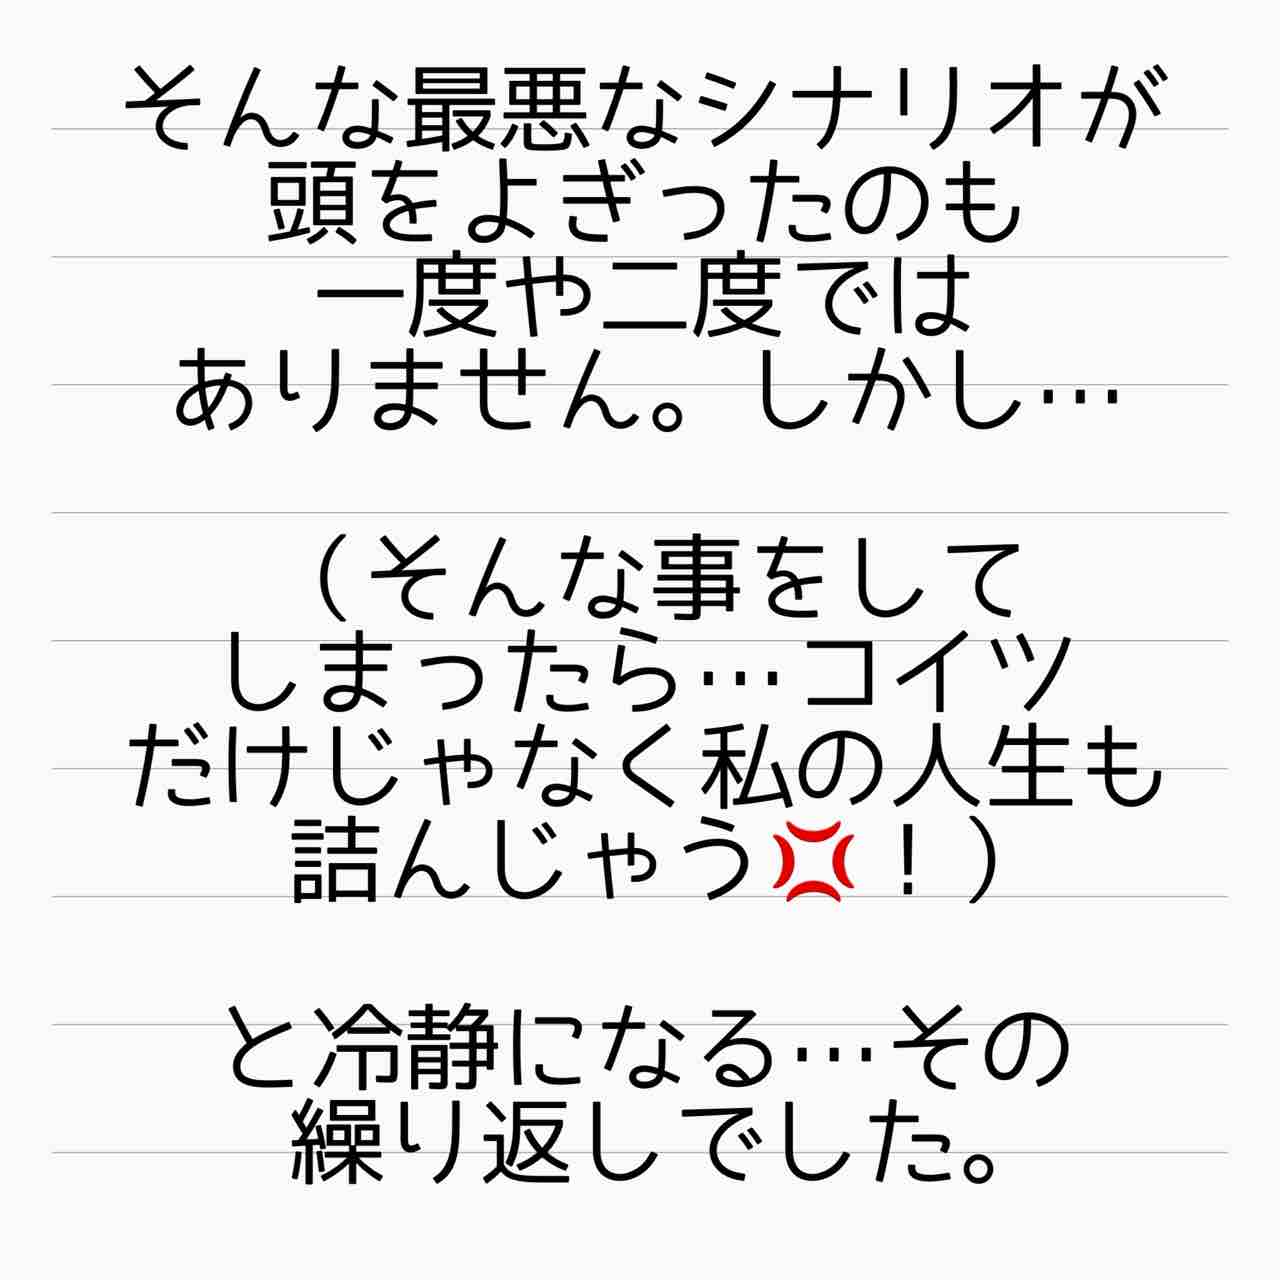 そんな最悪なシナリオが
頭をよぎったのも
一度や二度では
ありません。しかし…
（そんな事をして
しまったら…コイツ
だけじゃなく私の人生も
詰んじゃう💢！）
と冷静になる…その
繰り返しでした。